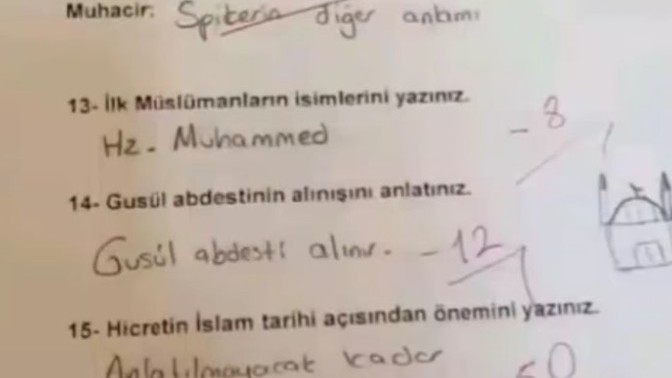 Muhacir: Spikerin diğer anlamı
13- İlk Müslümanların isimlerini yazınız.
Hz. Muhammed
- 8
14- Gusül abdestinin alınışını anlatınız.
Gusül abdesti alınır. - 12
15- Hicretin İslam tarihi açısından önemini yazınız.
Anlatılmayacak kadar